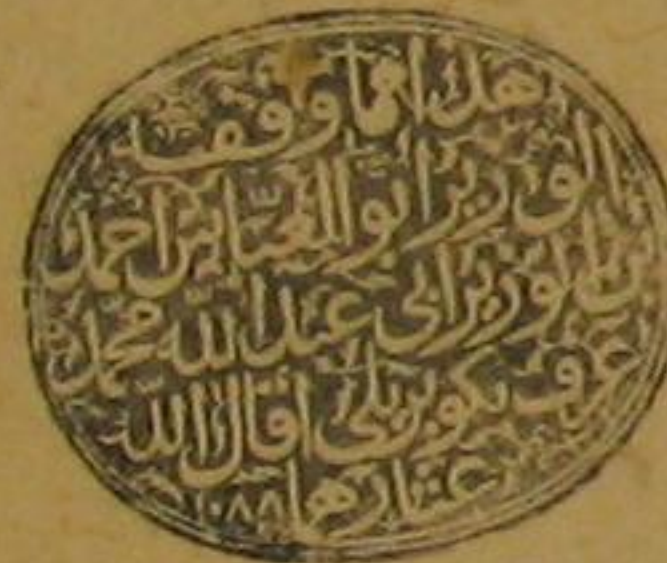 هذا مما وقفه
الوزير أبو العباس احمد
بن الوزير ابي عبد الله محمد
عرف بكوبريلي اقال الله
عثارهما ١٠٨٨